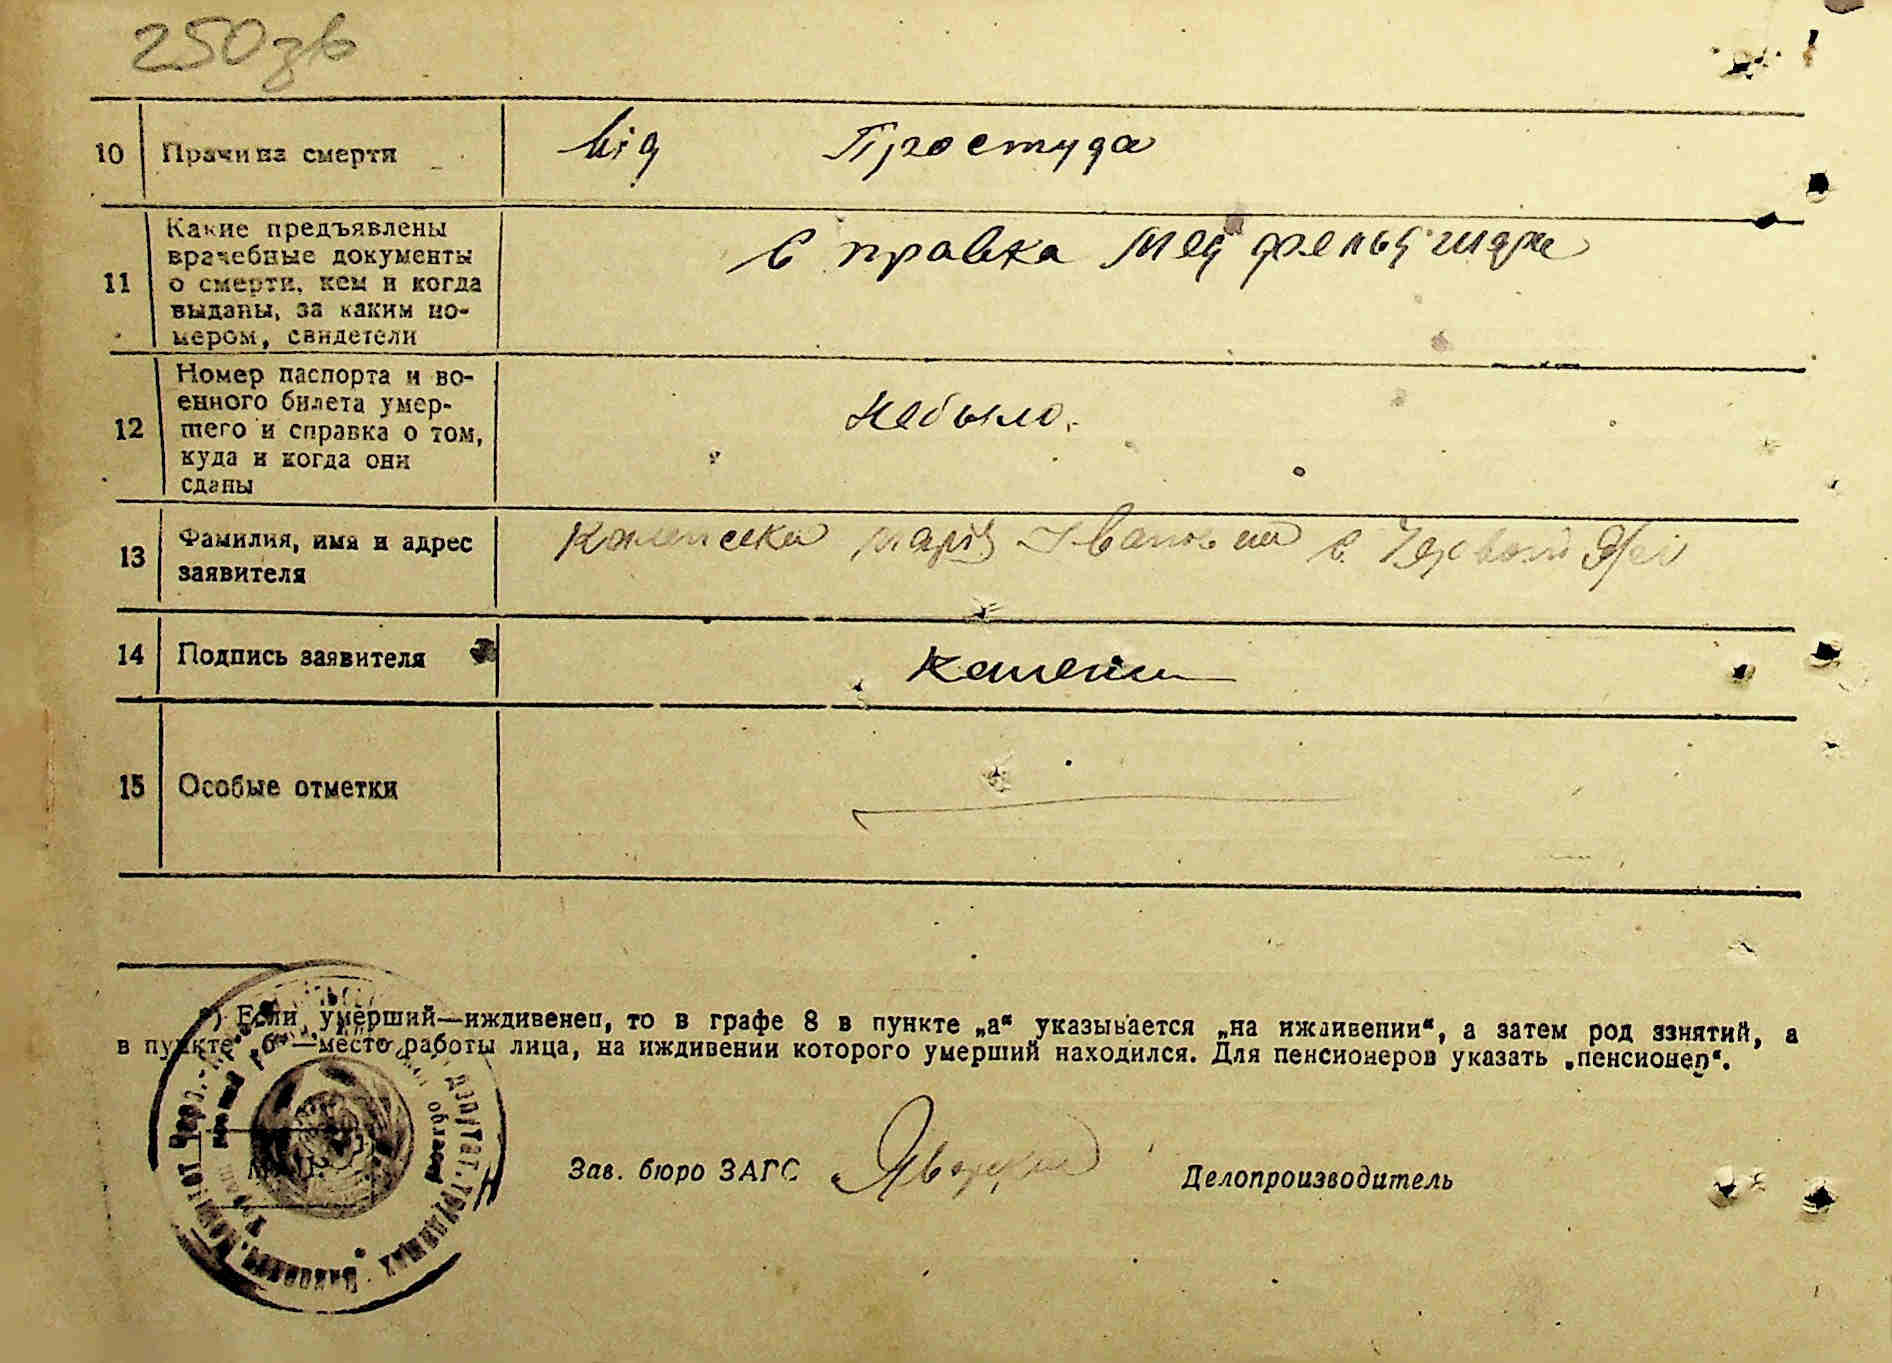 250зв
10 Причина смерти від Простуда
11 Какие предъявлены
врачебные документы
о смерти, кем и когда
выданы, за каким но-
мером, свидетели
Справка Мед фельдшера
12 Номер паспорта и во-
енного билета умер-
шего и справка о том,
куда и когда они
сданы
Небыло.
13 Фамилия, имя и адрес
заявителя
Івановна с.
14 Подпись заявителя
15 Особые отметки
*) Если умерший—иждивенец, то в графе 8 в пункте „а“ указывается „на иждивении“, а затем род занятий, а
в пункте „б“—место работы лица, на иждивении которого умерший находился. Для пенсионеров указать „пенсионер“.
Зав. бюро ЗАГС Делопроизводитель
депутат. трудящих